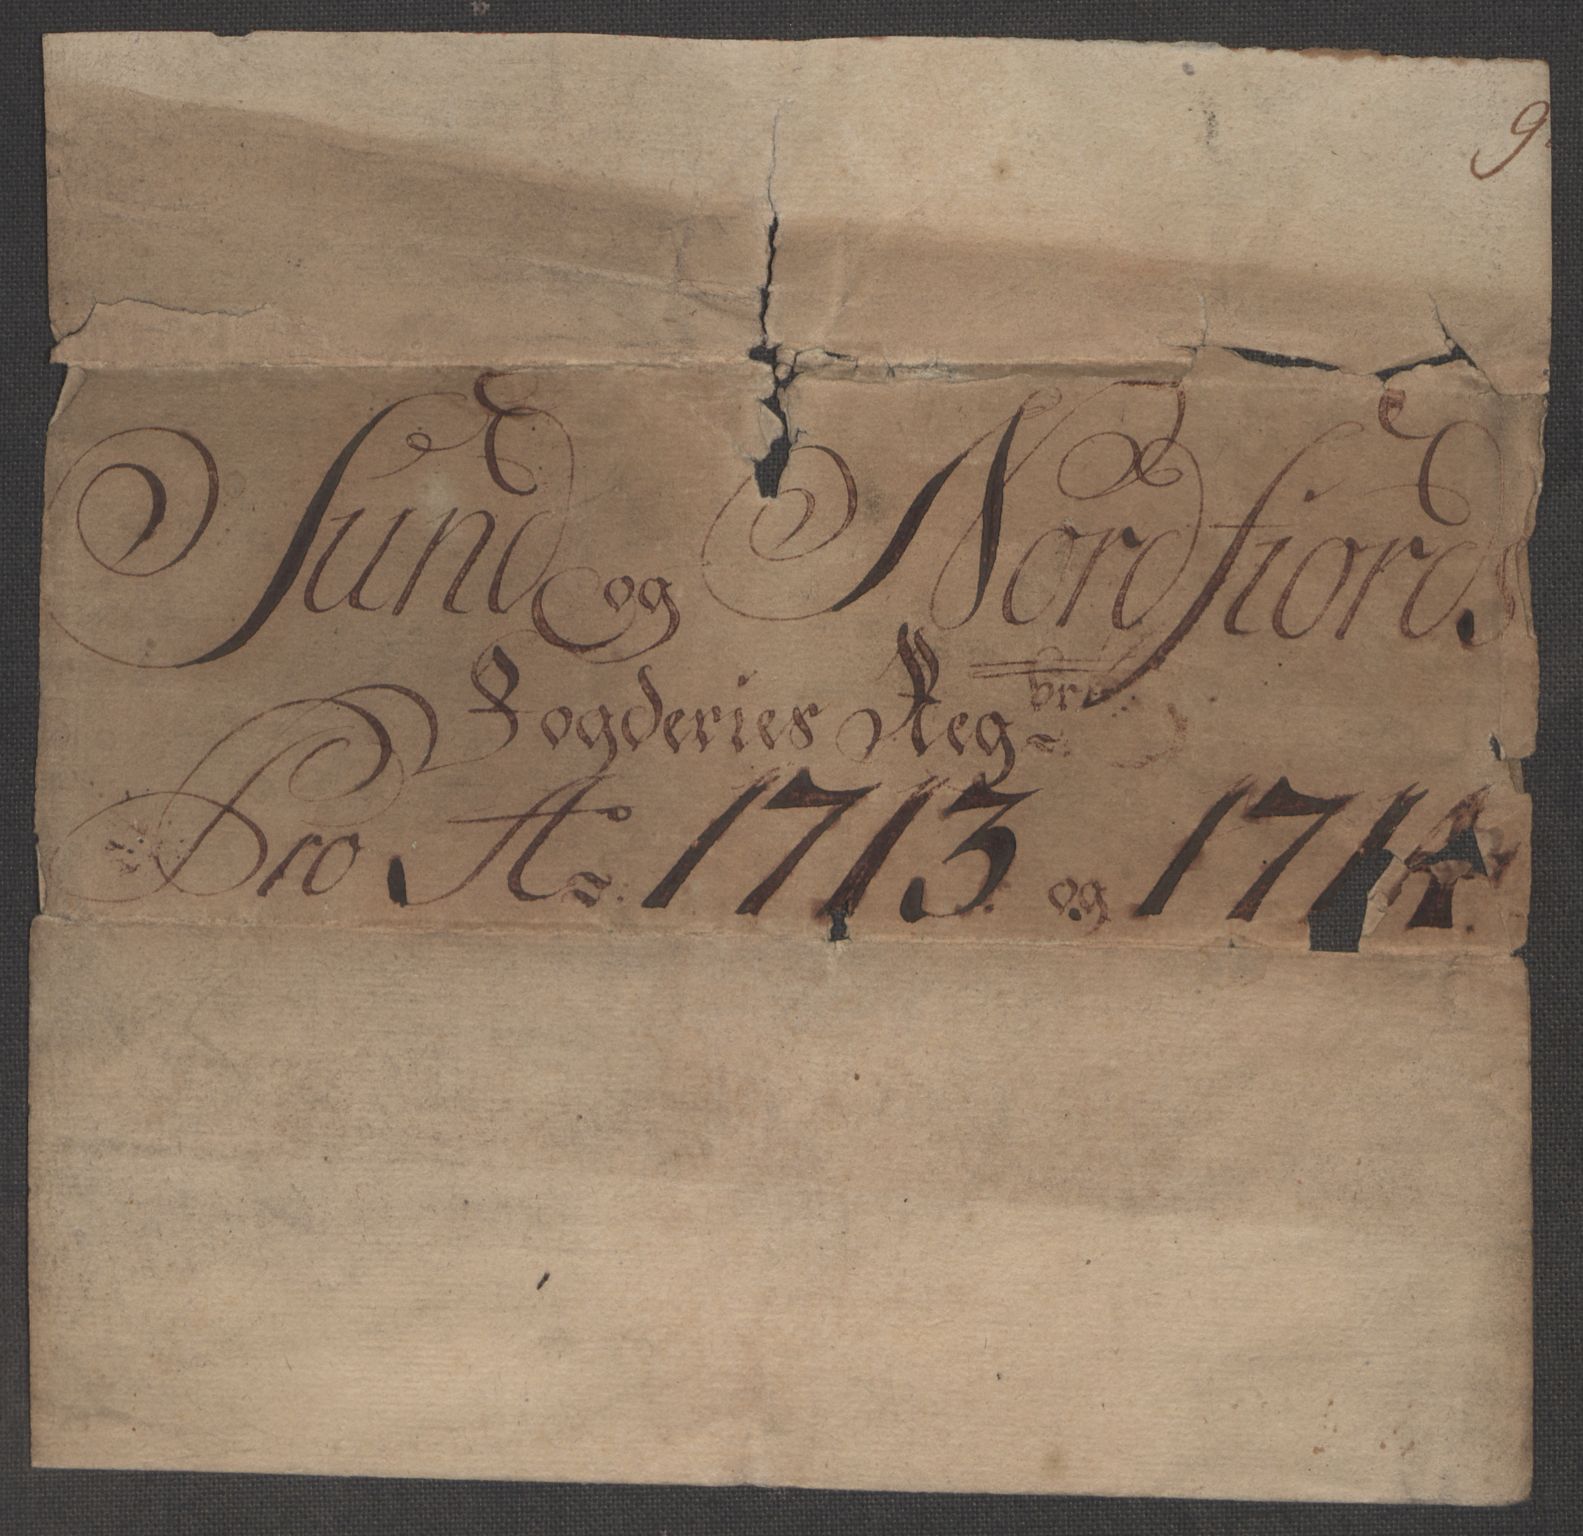 9
Sund og Nordfiords
Fogderies Reg
Pro Ao 1713. og 1714.